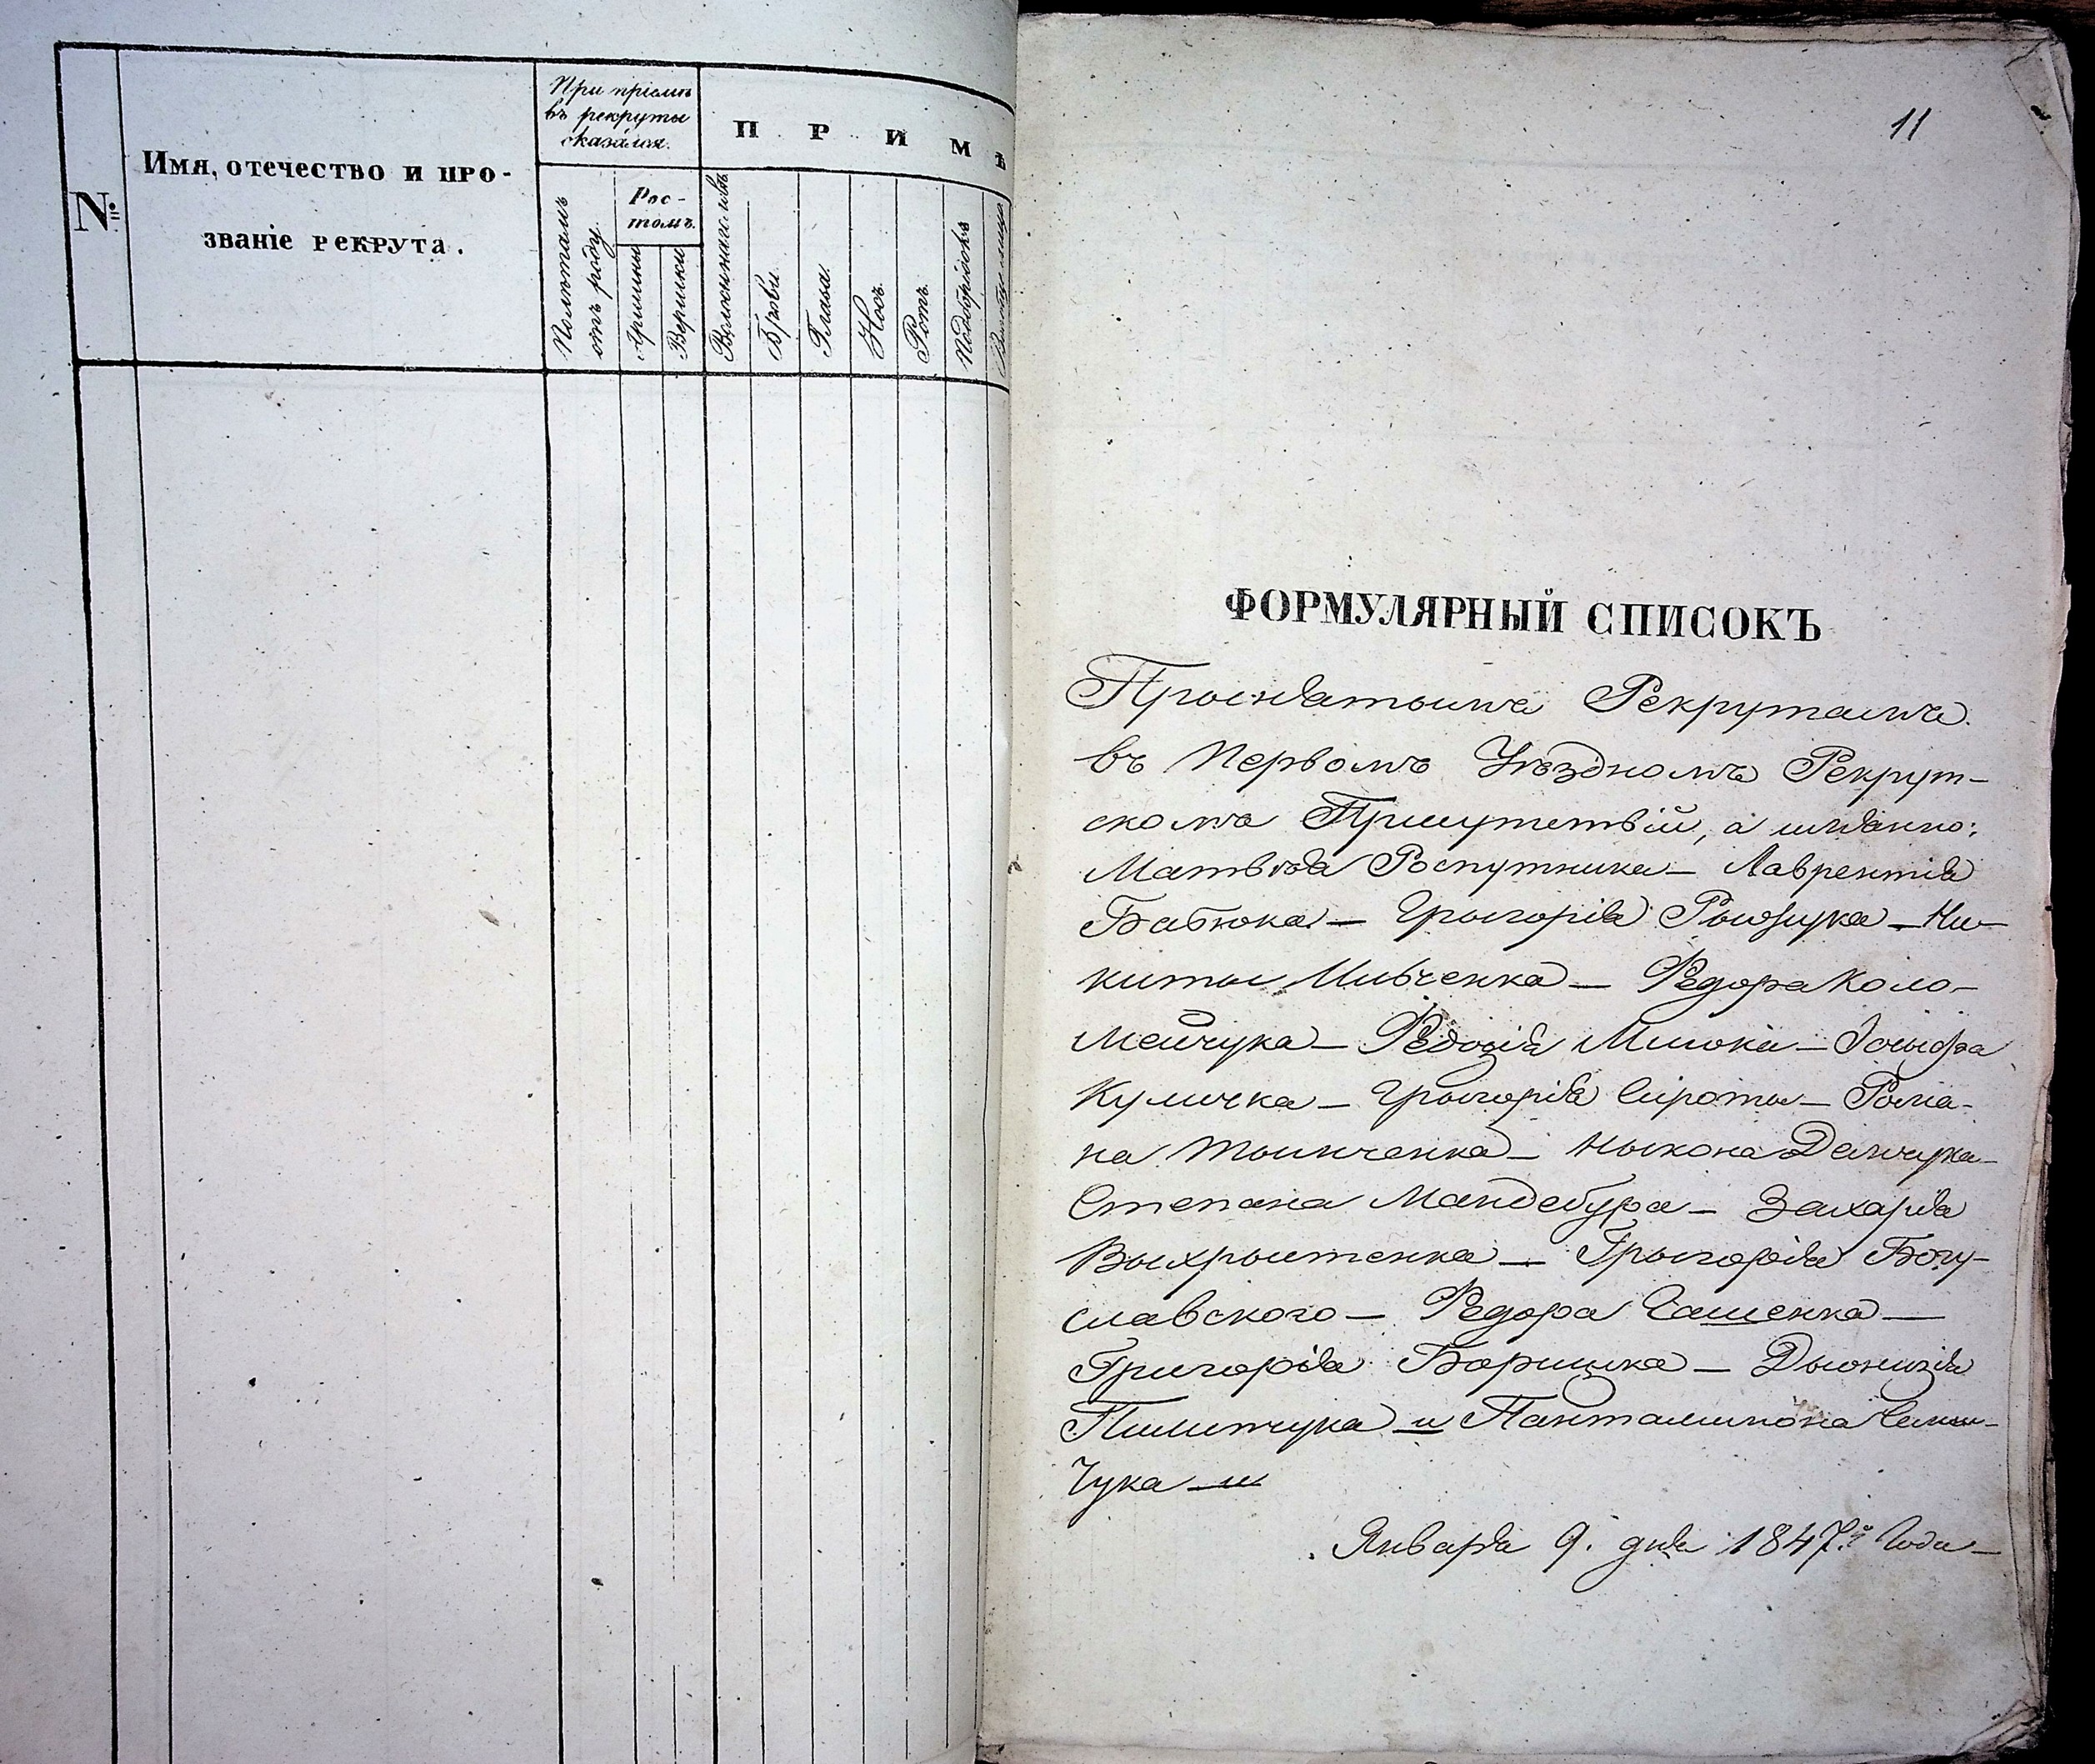 №
Имя, отечество и про-
званіе рекрута.
При пріемѣ
въ рекруты
оказался.
Полѣтамъ
отъ роду.
Рос-
томъ.
Аршины
Вершки
П Р И М Ѣ
Брови
Глаза
Носъ.
Ротъ.
Подбородокъ
11
ФОРМУЛЯРНЫЙ СПИСОКЪ
Принятымъ Рекрутамъ
въ Первомъ Уѣздномъ Рекрут-
скомъ Присутствіи, а имянно:
Матвѣя Роспутника — Лаврентія
Бабюка — Грыгорія — Ни-
киты Ливченка — Ѳедора Коло-
мейчука — Ѳедосія — Іосыфа
Куличка — Грыгорія Сироты — Рома-
на Тымченка — Ныкона Демчука —
Степана Мандебура — Захарія
Выхрыстенка — Грыгорія Богу-
славского — Ѳедора Сашенка —
Григорія Борищка — Дыонизія
Пилипчука и Панталимона
чука
Января 9. дня 1847.го Года —